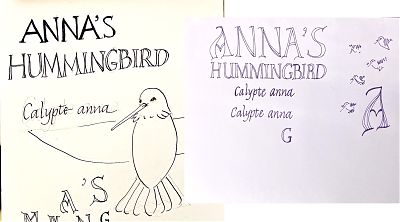 ANNA'S
HUMMINGBIRD
Calypte anna
A'S
ANNA'S
HUMMINGBIRD
Calypte anna
Calypte anna
G
A